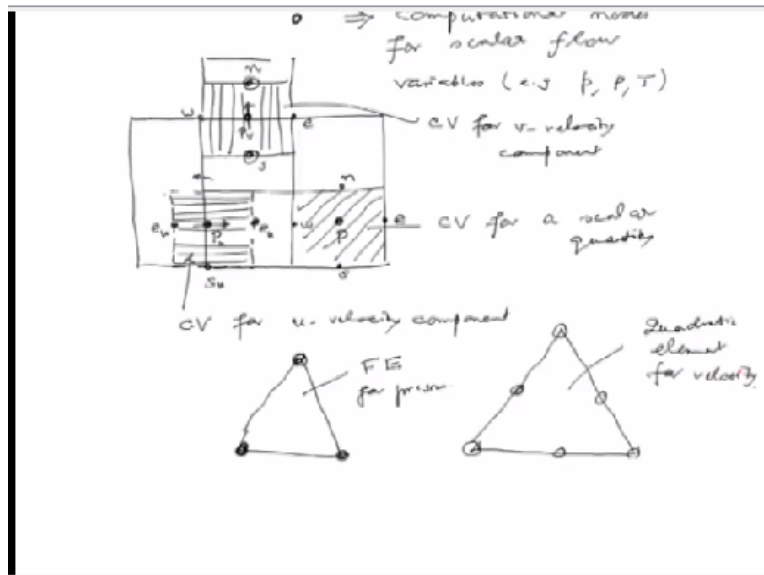 ⇒ computational nodes
for scalar flow
variables (e.g p, ρ, T)
n
w
e
Pv
s
CV for v-velocity
component
n
w
P
e
s
CV for a scalar
quantity
Pu
Su
CV for u-velocity component
FE
for
Quadratic
element
for velocity